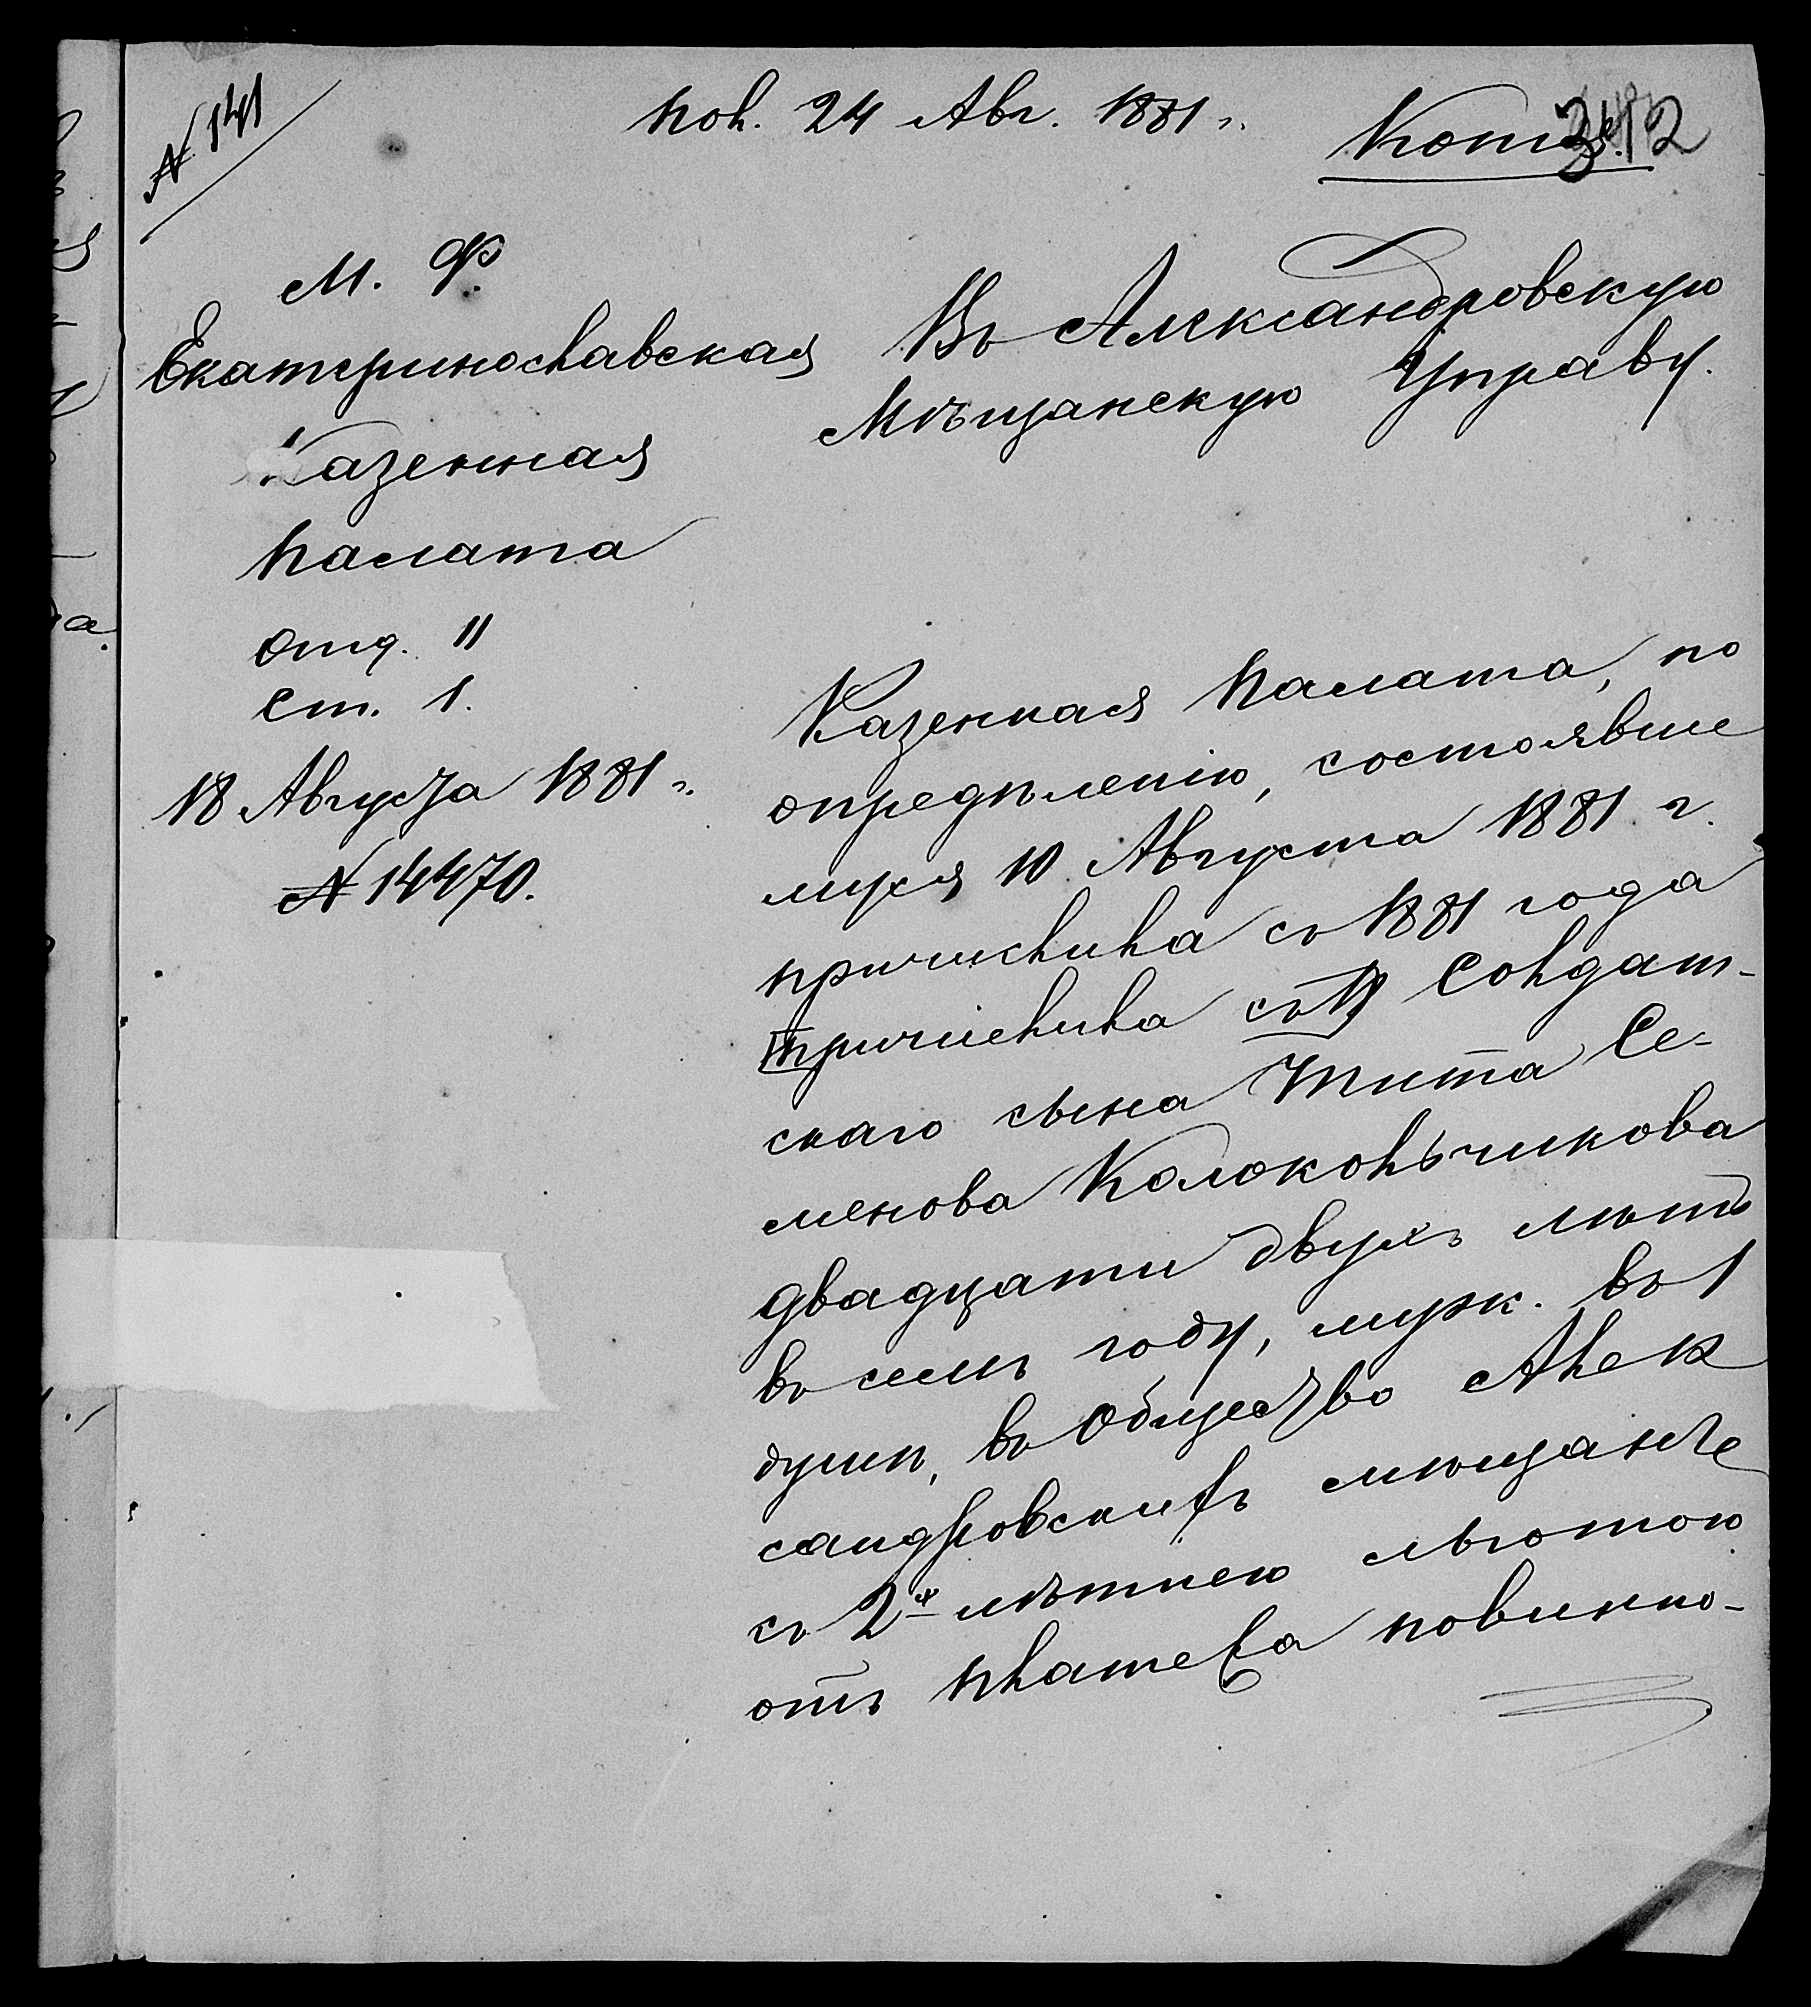 № 141
пол. 24 Авг. 1881 г.
Копія.
342
М. Ф.
Екатеринославская
Казенная
палата
Отд. II
Ст. 1.
18 Августа 1881 г.
№ 14470.
Въ Александровскую
Мѣщанскую Управу.
Казенная палата, по
опредѣленію, состоявше
муся 10 Августа 1881 г.
причислила съ 1881 года
причислила съ Солдат-
скаго сына Тита Се-
менова Колокольчикова
двадцати двухъ лѣтъ
въ семъ году, муж. въ 1
душѣ, въ общество Алек
сандровскихъ мѣщанъ
съ 2х лѣтнею льготою
отъ платежа повинно-